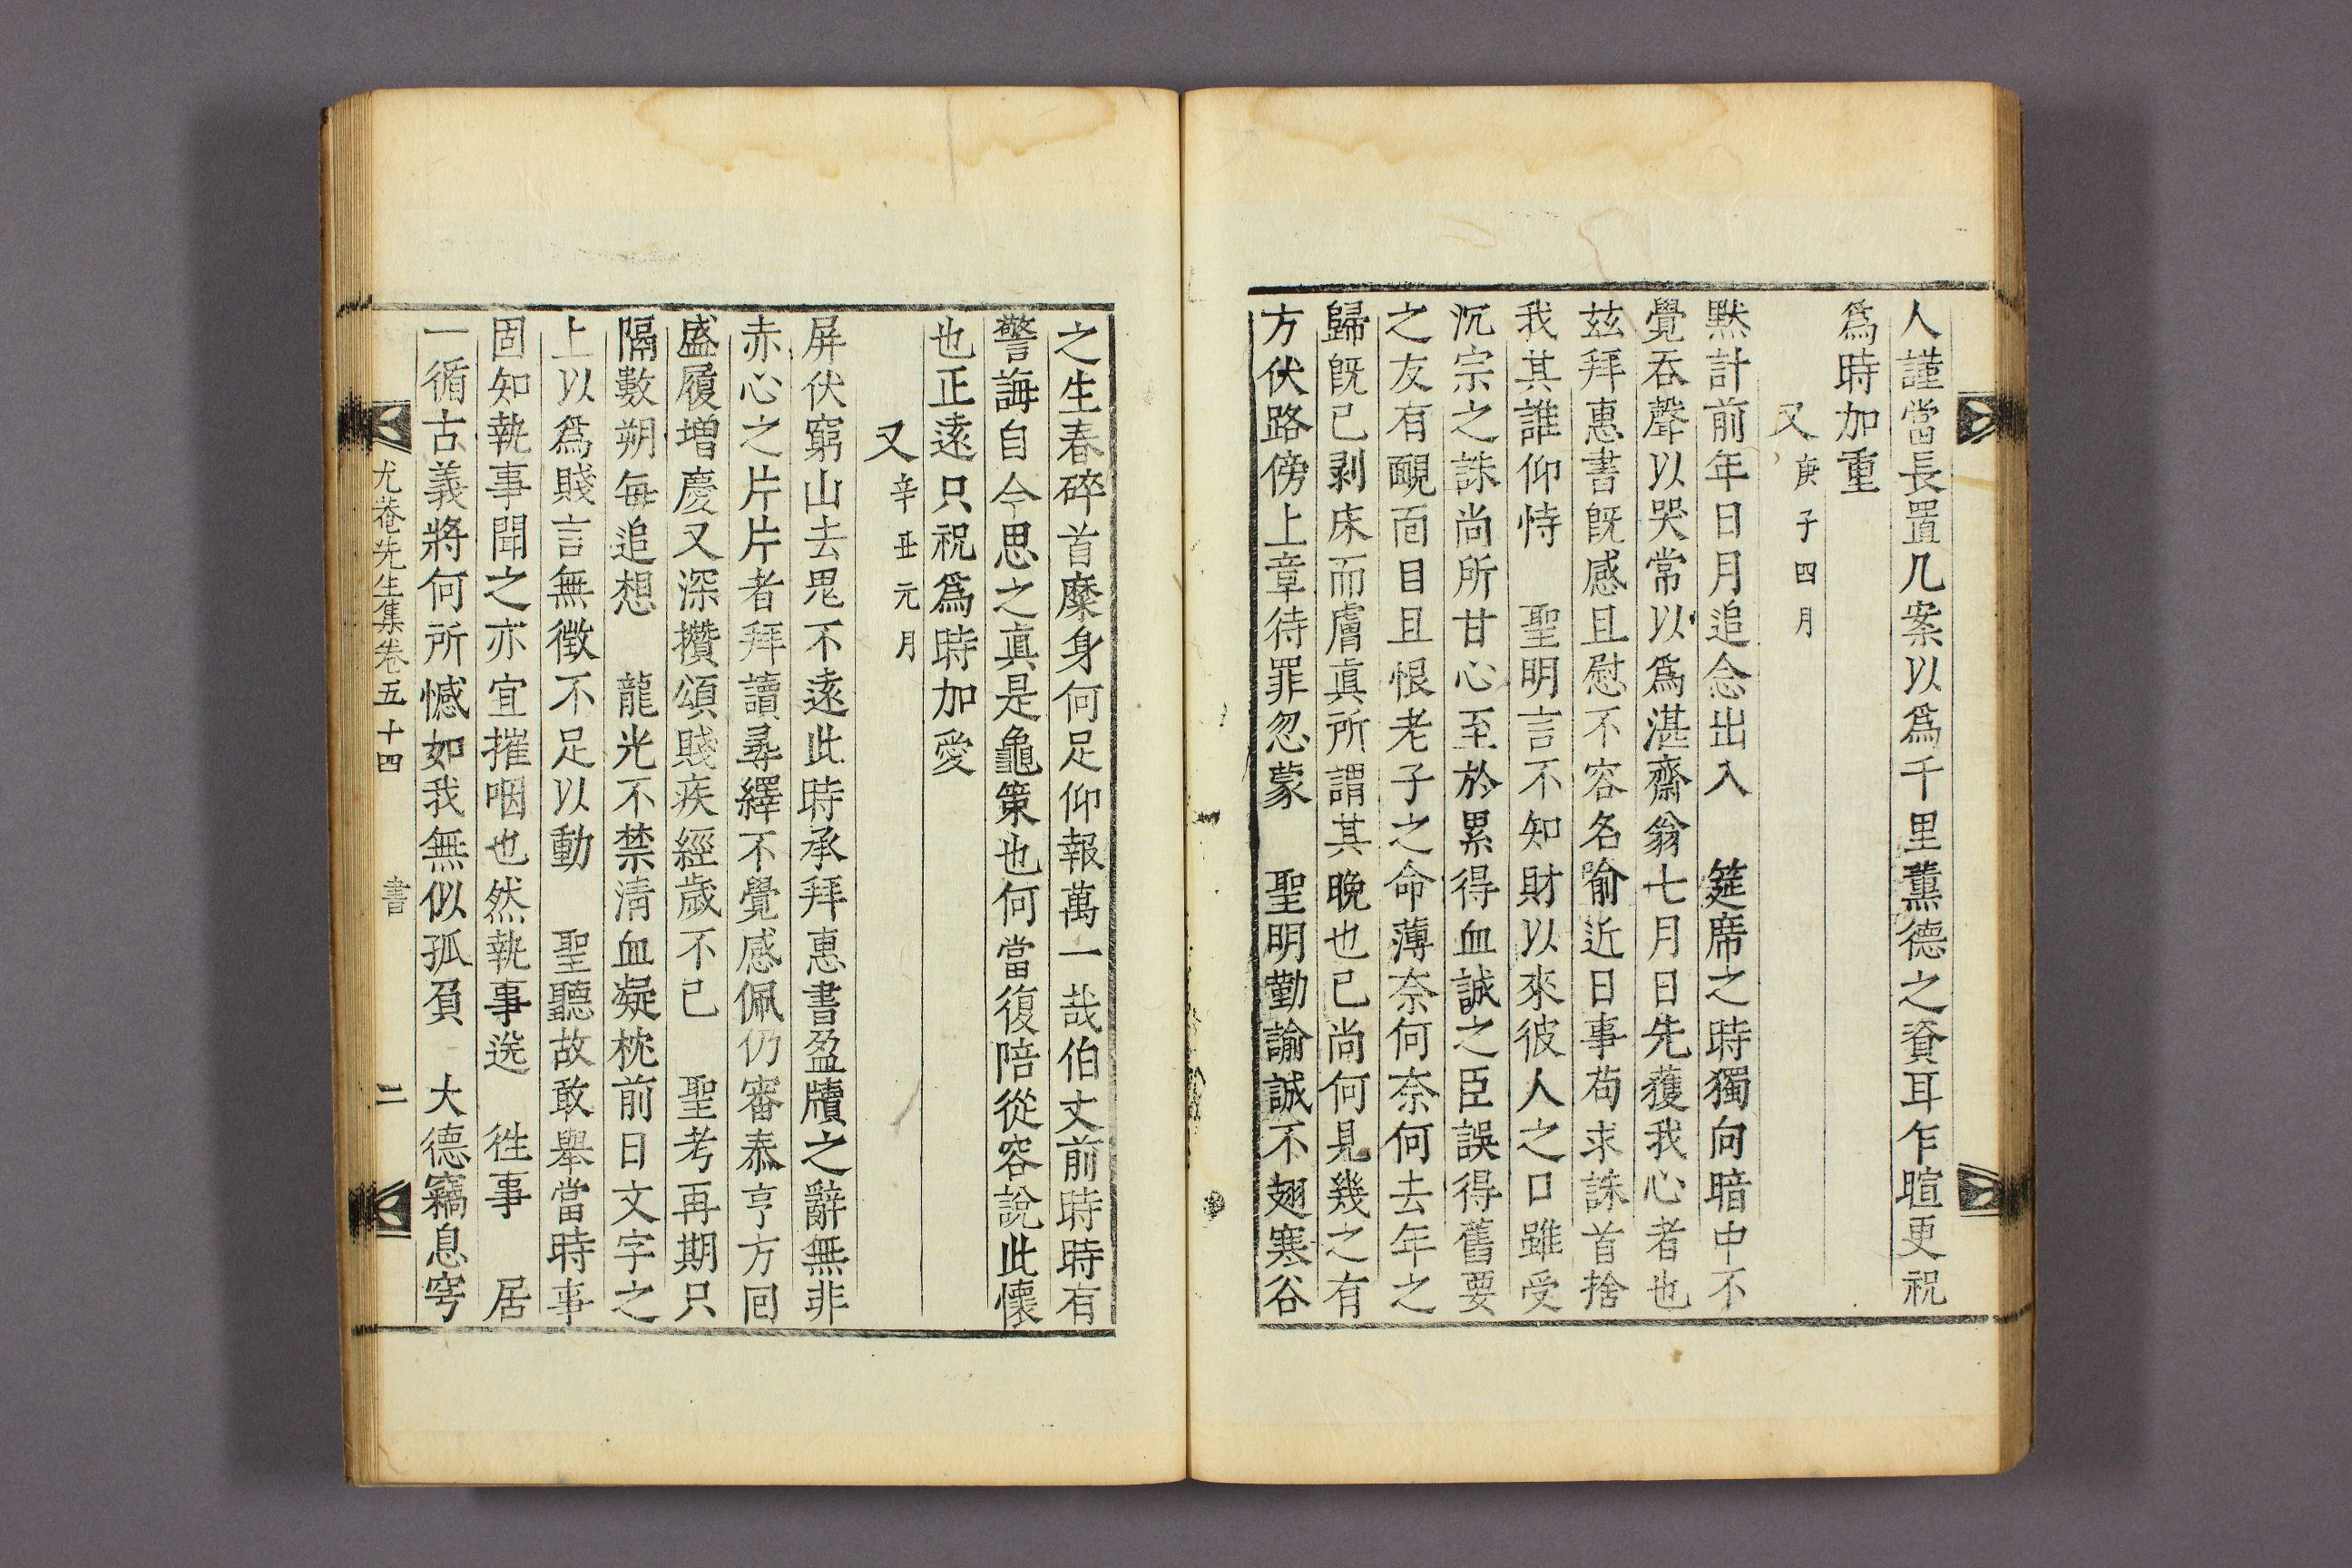 人謹當長置几案以爲千里薰德之資耳乍暄更祝
爲時加重
又 庚子四月
默計前年日月追念出入　筵席之時獨向暗中不
覺吞聲以哭常以爲湛齋翁七月日先獲我心者也
玆拜惠書旣感且慰不容名喻近日事苟求誅首捨
我其誰仰恃　聖明言不知財以來彼人之口雖受
沉宗之誅尚所甘心至於累得血誠之臣誤得舊要
之友有靦面目且恨老子之命薄奈何奈何去年之
歸旣已剥床而膚眞所謂其晚也已尚何見幾之有
方伏路傍上章待罪忽蒙　聖明勤諭誠不翅寒谷
之生春碎首糜身何足仰報萬一哉伯丈前時時有
警誨自今思之眞是龜策也何當復陪從容說此懷
也正遠只祝爲時加愛
又 辛丑元月
屏伏窮山去鬼不遠此時承拜惠書盈牘之辭無非
赤心之片片者拜讀尋繹不覺感佩仍審泰亨方回
盛履增慶又深攢頌賤疾經歲不已　聖考再期只
隔數朔每追想　龍光不禁淸血凝枕前日文字之
上以爲賤言無徵不足以動　聖聽故敢舉當時事
固知執事聞之亦宜摧咽也然執事送　徃事　居
一循古義將何所憾如我無似孤負　大德竊息穹
尤菴先生集卷五十四　書　二